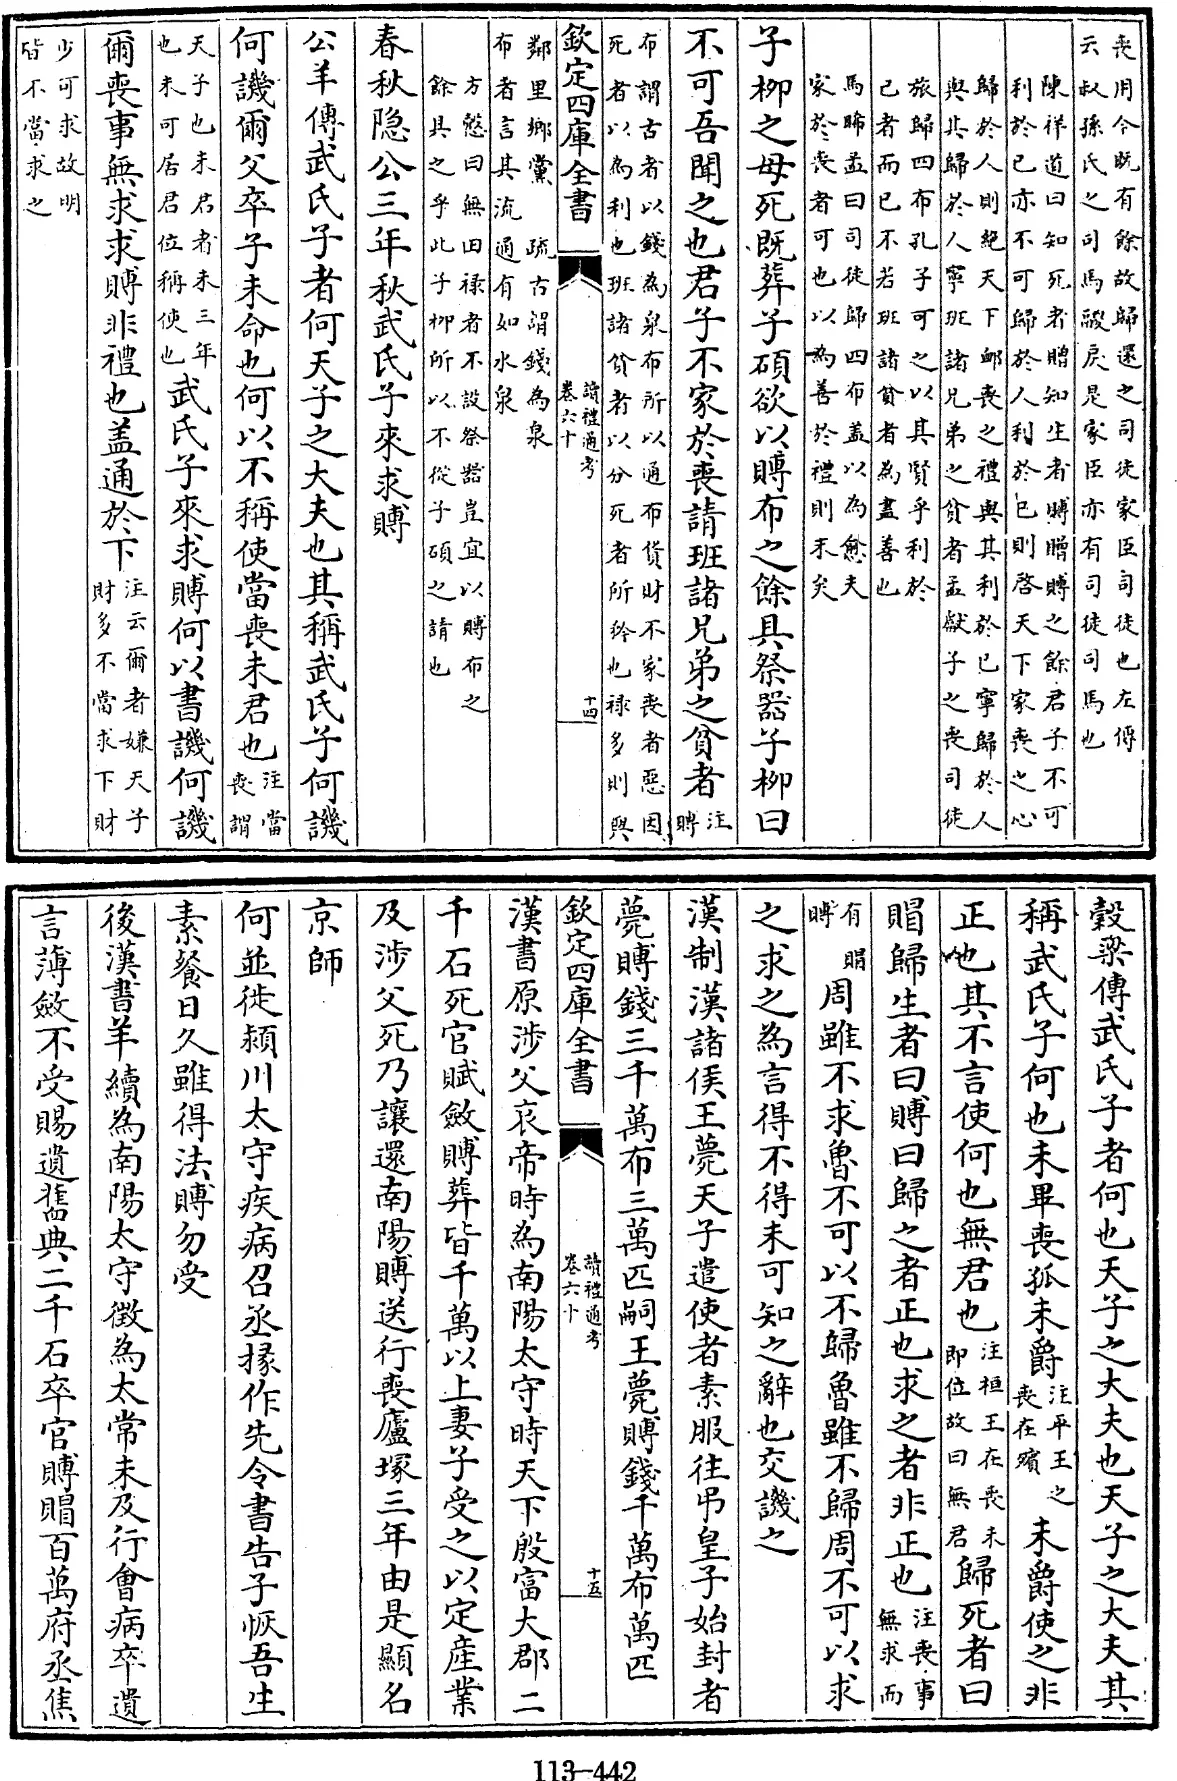 喪用今既有餘故歸還之司徒家臣司徒也左傳
云叔孫氏之司馬鬷戾是家臣亦有司徒司馬也
陳祥道曰知死者贈知生者賻贈賻之餘君子不可
利於已亦不可歸於人利於已則啓天下家喪之心
歸於人則絶天下䘏喪之禮與其利於已寧歸於人
與其歸於人寧班諸兄弟之貧者孟獻子之喪司徒
旅歸四布孔子可之以其賢乎利於
已者而已不若班諸貧者為盡善也
馬晞孟曰司徒歸四布蓋以為愈夫
家於喪者可也以為善於禮則未矣
子柳之母死既葬子碩欲以賻布之餘具祭器子柳曰
不可吾聞之也君子不家於喪請班諸兄弟之貧者注賻
布謂古者以錢為泉布所以通布貨財不家喪者惡因
死者以為利也班諸貧者以分死者所矜也禄多則與
欽定四庫全書 讀禮通考 卷六十 十四
鄰里鄉黨 疏古謂錢為泉
布者言其流通有如水泉
方慤曰無田禄者不設祭器豈宜以賻布之
餘具之乎此子柳所以不從子碩之請也
春秋隐公三年秋武氏子來求賻
公羊傳武氏子者何天子之大夫也其稱武氏子何譏
何譏爾父卒子未命也何以不稱使當喪未君也注當喪謂
天子也未君者未三年也未可居君位稱使也武氏子來求賻何以書譏何譏
爾喪事無求求賻非禮也蓋通於下注云爾者嫌天子財多不當求下財
少可求故明
皆不當求之
穀梁傳武氏子者何也天子之大夫也天子之大夫其
稱武氏子何也未畢喪孤未爵注平王之喪在殯未爵使之非
正也其不言使何也無君也注桓王在喪未即位故曰無君歸死者曰
賵歸生者曰賻曰歸之者正也求之者非正也注喪事無求而
有賵賻周雖不求魯不可以不歸魯雖不歸周不可以求
之求之為言得不得未可知之辭也交譏之
漢制漢諸侯王薨天子遣使者素服往弔皇子始封者
薨賻錢三千萬布三萬匹嗣王薨賻錢千萬布萬匹
欽定四庫全書 讀禮通考 卷六十 十五
漢書原涉父哀帝時為南陽太守時天下殷富大郡二
千石死官賦斂賻葬皆千萬以上妻子受之以定産業
及涉父死乃讓還南陽賻送行喪廬塚三年由是顯名
京師
何並徙潁川太守疾病召丞掾作先令書告子恢吾生
素餐日久雖得法賻勿受
後漢書羊續為南陽太守徵為太常未及行會病卒遺
言薄斂不受賜遺舊典二千石卒官賻賵百萬府丞焦
113-442